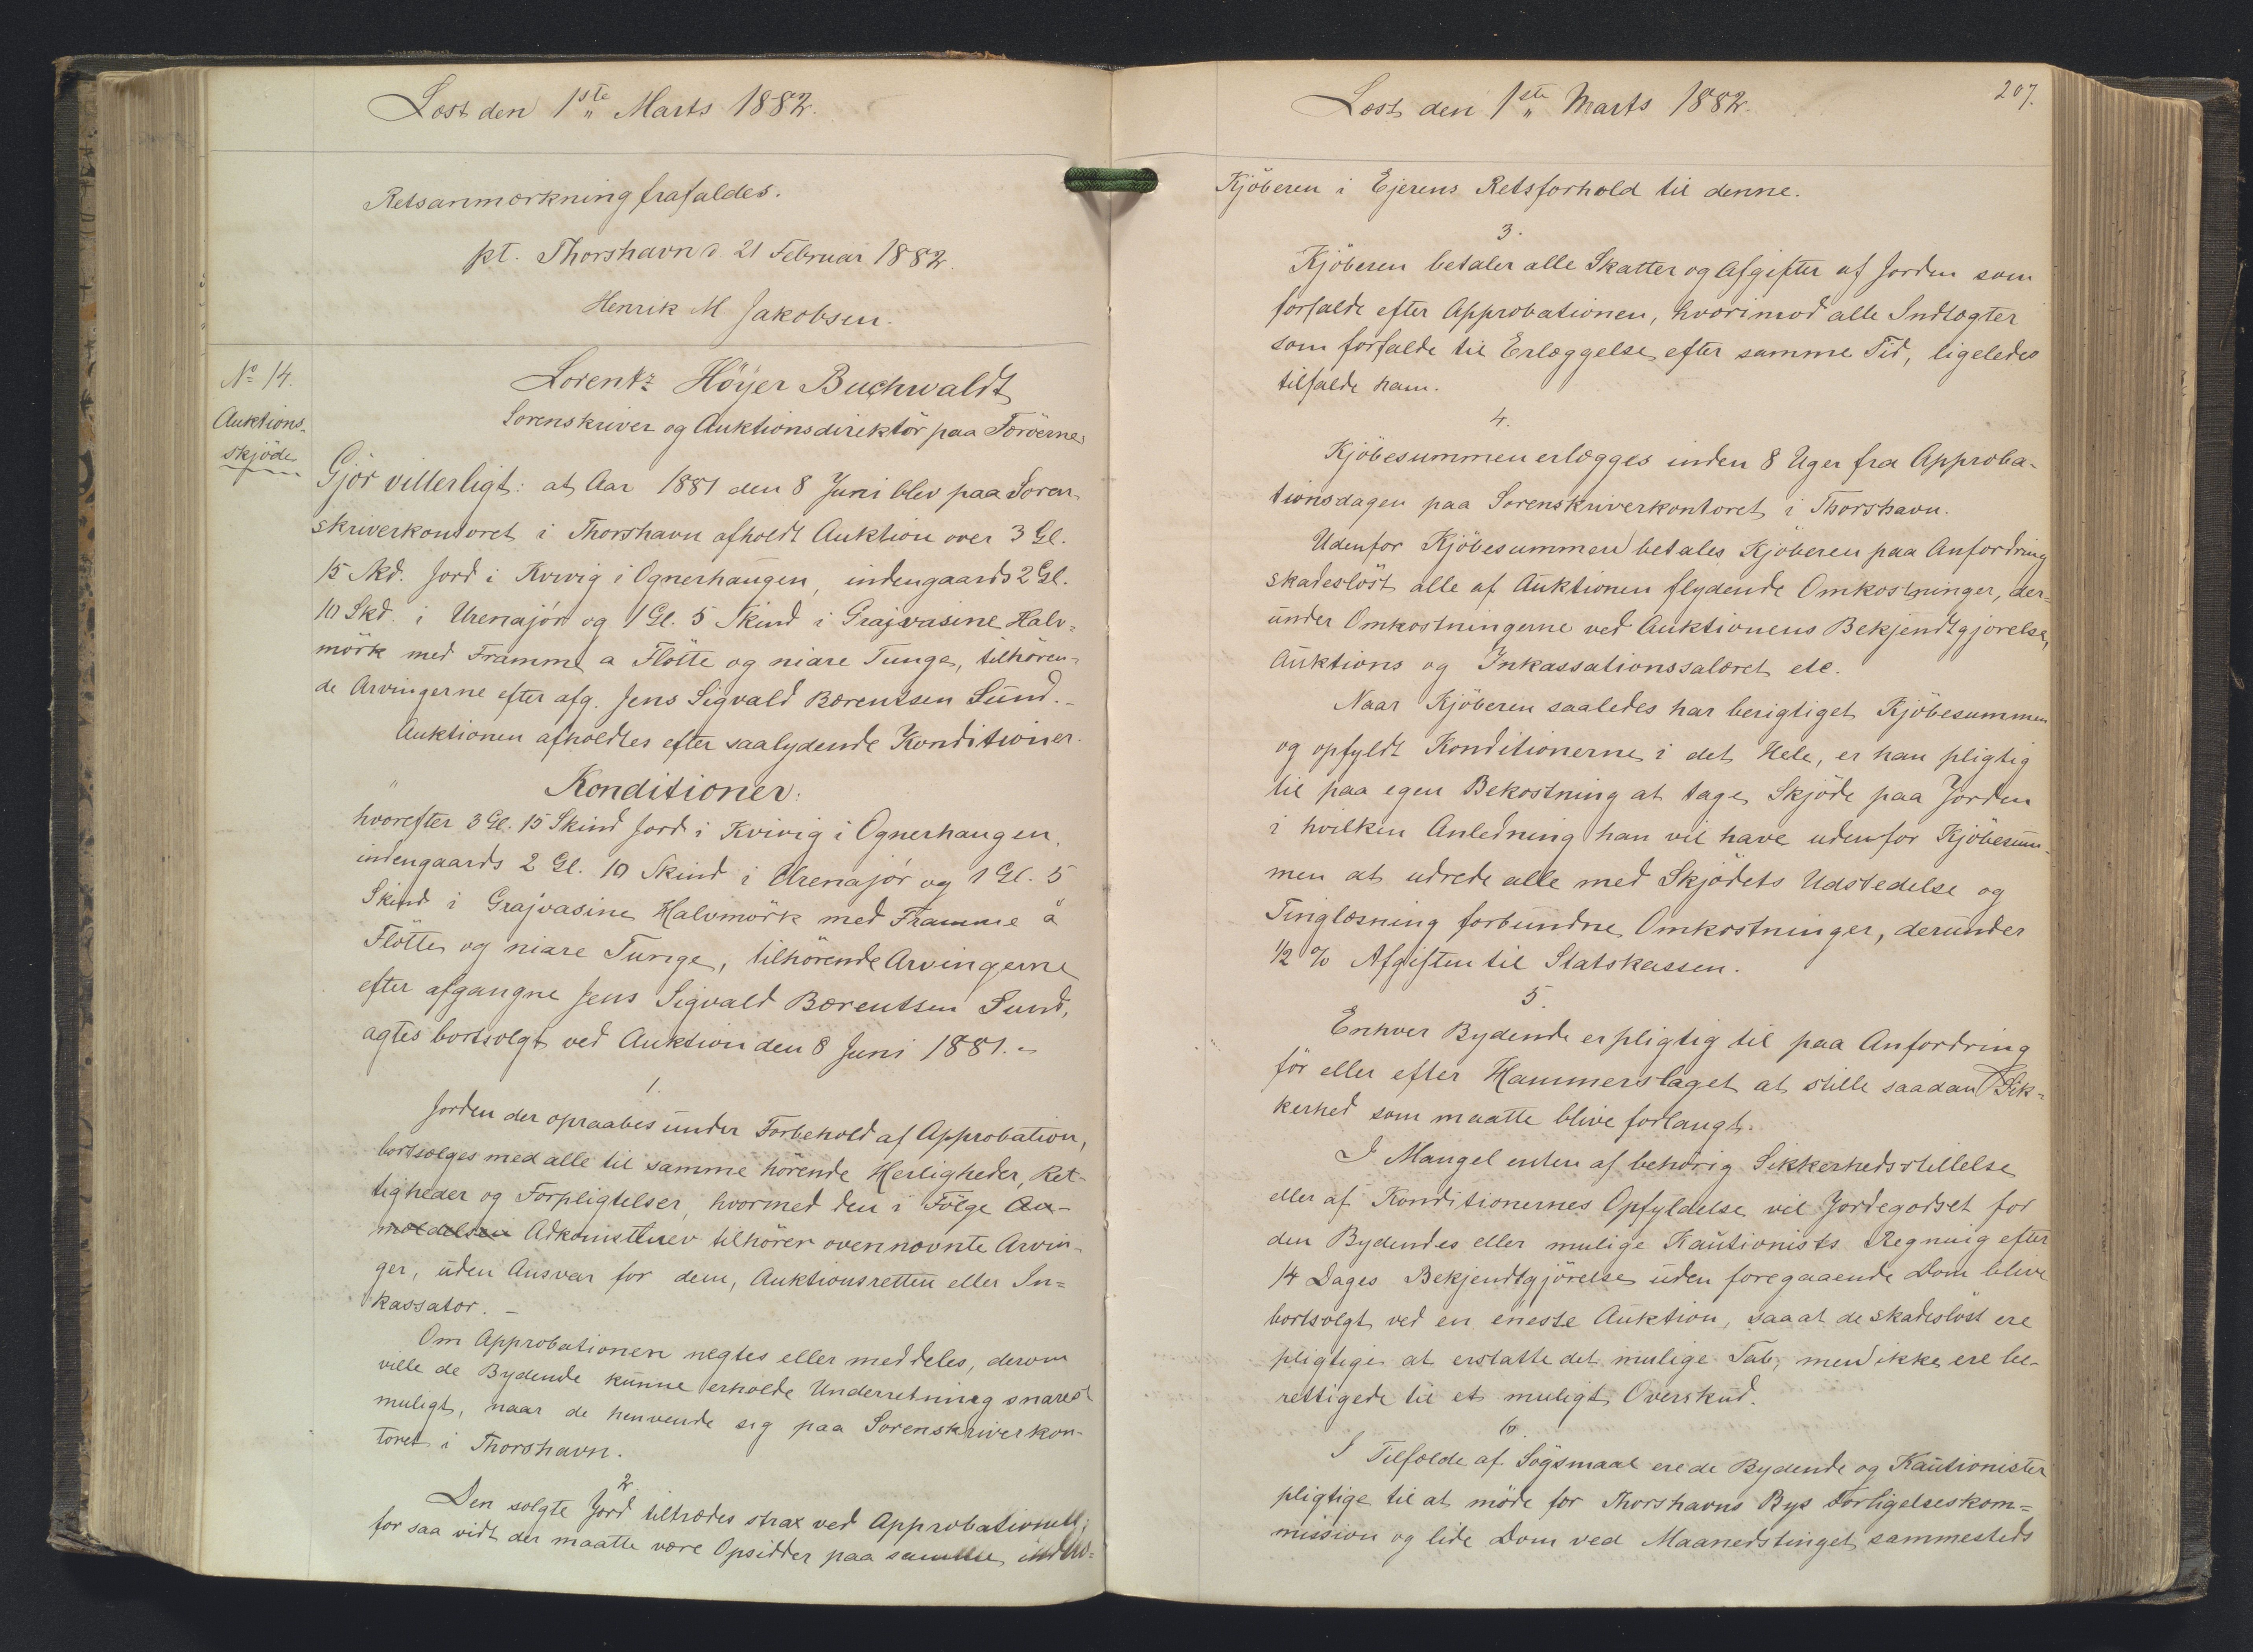 Læst den 1ste Marts 1882.
Retsanmærkning frafaldes.
pt. Thorshavn d. 21 Februar 1882.
Henrik M Jakobsen.
No 14.
Auktions-
skjöde
Lorentz Höyer Buchwaldt
Sorenskriver og Auktionsdirektör paa Færöerne
Gjör vitterligt: at Aar 1881 den 8 Juni blev paa Soren-
skriverkontoret i Thorshavn afholdt Auktion over 3 Gl.
15 Skd. Jord i Kvivig i Ognerhaugen, indengaards 2 Gl.
10 Skd. i Urenajör og 1 Gl. 5 Skind i Grajvasine Halv-
mörk med Framme a Flötte og niare Tunge, tilhören-
de Arvingerne efter afg. Jens Sigvald Bærentsen Sund.-
Auktionen afholdtes efter saalydende Konditioner.
"
Konditioner.
hvorefter 3 Gl. 15 Skind Jord i Kvivig i Ognerhaugen,
indengaards 2 Gl. 10 Skind i Urenajör og 1 Gl. 5
Skind i Grajvasine Halvmörk med Framme å
Flötte og niare Tunge, tilhörende Arvingerne
efter afgangne Jens Sigvald Bærentsen Sund,
agtes bortsolgt ved Auktion den 8 Juni 1881.-
1.
Jorden der opraabes under Forbehold af Approbation,
bortsælges med alle til samme hörende Herligheder, Ret-
tigheder og Forpligtelser, hvormed den i Fölge An-
mældelsen Adkomstbrev tilhörer ovennævnte Arvin-
ger, uden Ansvar for dem, Auktionsretten eller In-
kassator.-
Om Approbationen negtes eller meddeles, derom
ville de Bydende kunne erholde Underretning snarest
muligt, naar de henvende sig paa Sorenskriverkon-
toret i Thorshavn.
2.
Den solgte Jord tiltrædes strax ved Approbationen,
for saa vidt der maatte være Opsidder paa samme, indtræ-
207.
Læst den 1ste Marts 1882.
Kjöberen i Ejerens Retsforhold til denne.
3.
Kjöberen betaler alle Skatter og Afgifter af Jorden som
forfalde efter Approbationen, hvorimod alle Indtægter
som forfalde til Erlæggelse efter samme Tid, ligeledes
tilfalde ham.
4.
Kjöbesummen erlægges inden 8 Uger fra Approba-
tionsdagen paa Sorenskriverkontoret i Thorshavn.
Udenfor Kjöbesummen betales Kjöberen paa Anfordring
skadeslöst alle af Auktionen flydende Omkostninger, der-
under Omkostningerne ved Auktionens Bekjendtgjörelse,
Auktions og Inkassationssalæret etc.
Naar Kjöberen saaledes har berigtiget Kjöbesummen
og opfyldt Konditionerne i det Hele, er han pligtig
til paa egen Bekostning at tage Skjöde paa Jorden
i hvilken Anledning han vil have udenfor Kjöbesum-
men at udrede alle med Skjödets Udstedelse og
Tinglæsning forbundne Omkostninger, derunder
1/2 % Afgiften til Statskassen.
5.
Enhver Bydende er pligtig til paa Anfordring
för eller efter Hammerslaget at stille saadan Sik-
kerhed som maatte blive forlangt.
I Mangel enten af behörig Sikkerhedsstillelse
eller af Konditionernes Opfyldelse vil Jordegodset for
den Bydendes eller mulige Kautionists Regning efter
14 Dages Bekjendtgjörelse uden foregaaende Dom blive
bortsolgt ved en eneste Auktion, saa at de skadeslöst ere
pligtige at erstatte det mulige Tab, men ikke ere be-
rettigede til et muligt Overskud.
6.
I Tilfælde af Sögsmaal ere de Bydende og Kautionister
pligtige til at möde for Thorshavns Bys Forligelseskom-
mission og lide Dom ved Maanedstinget sammesteds